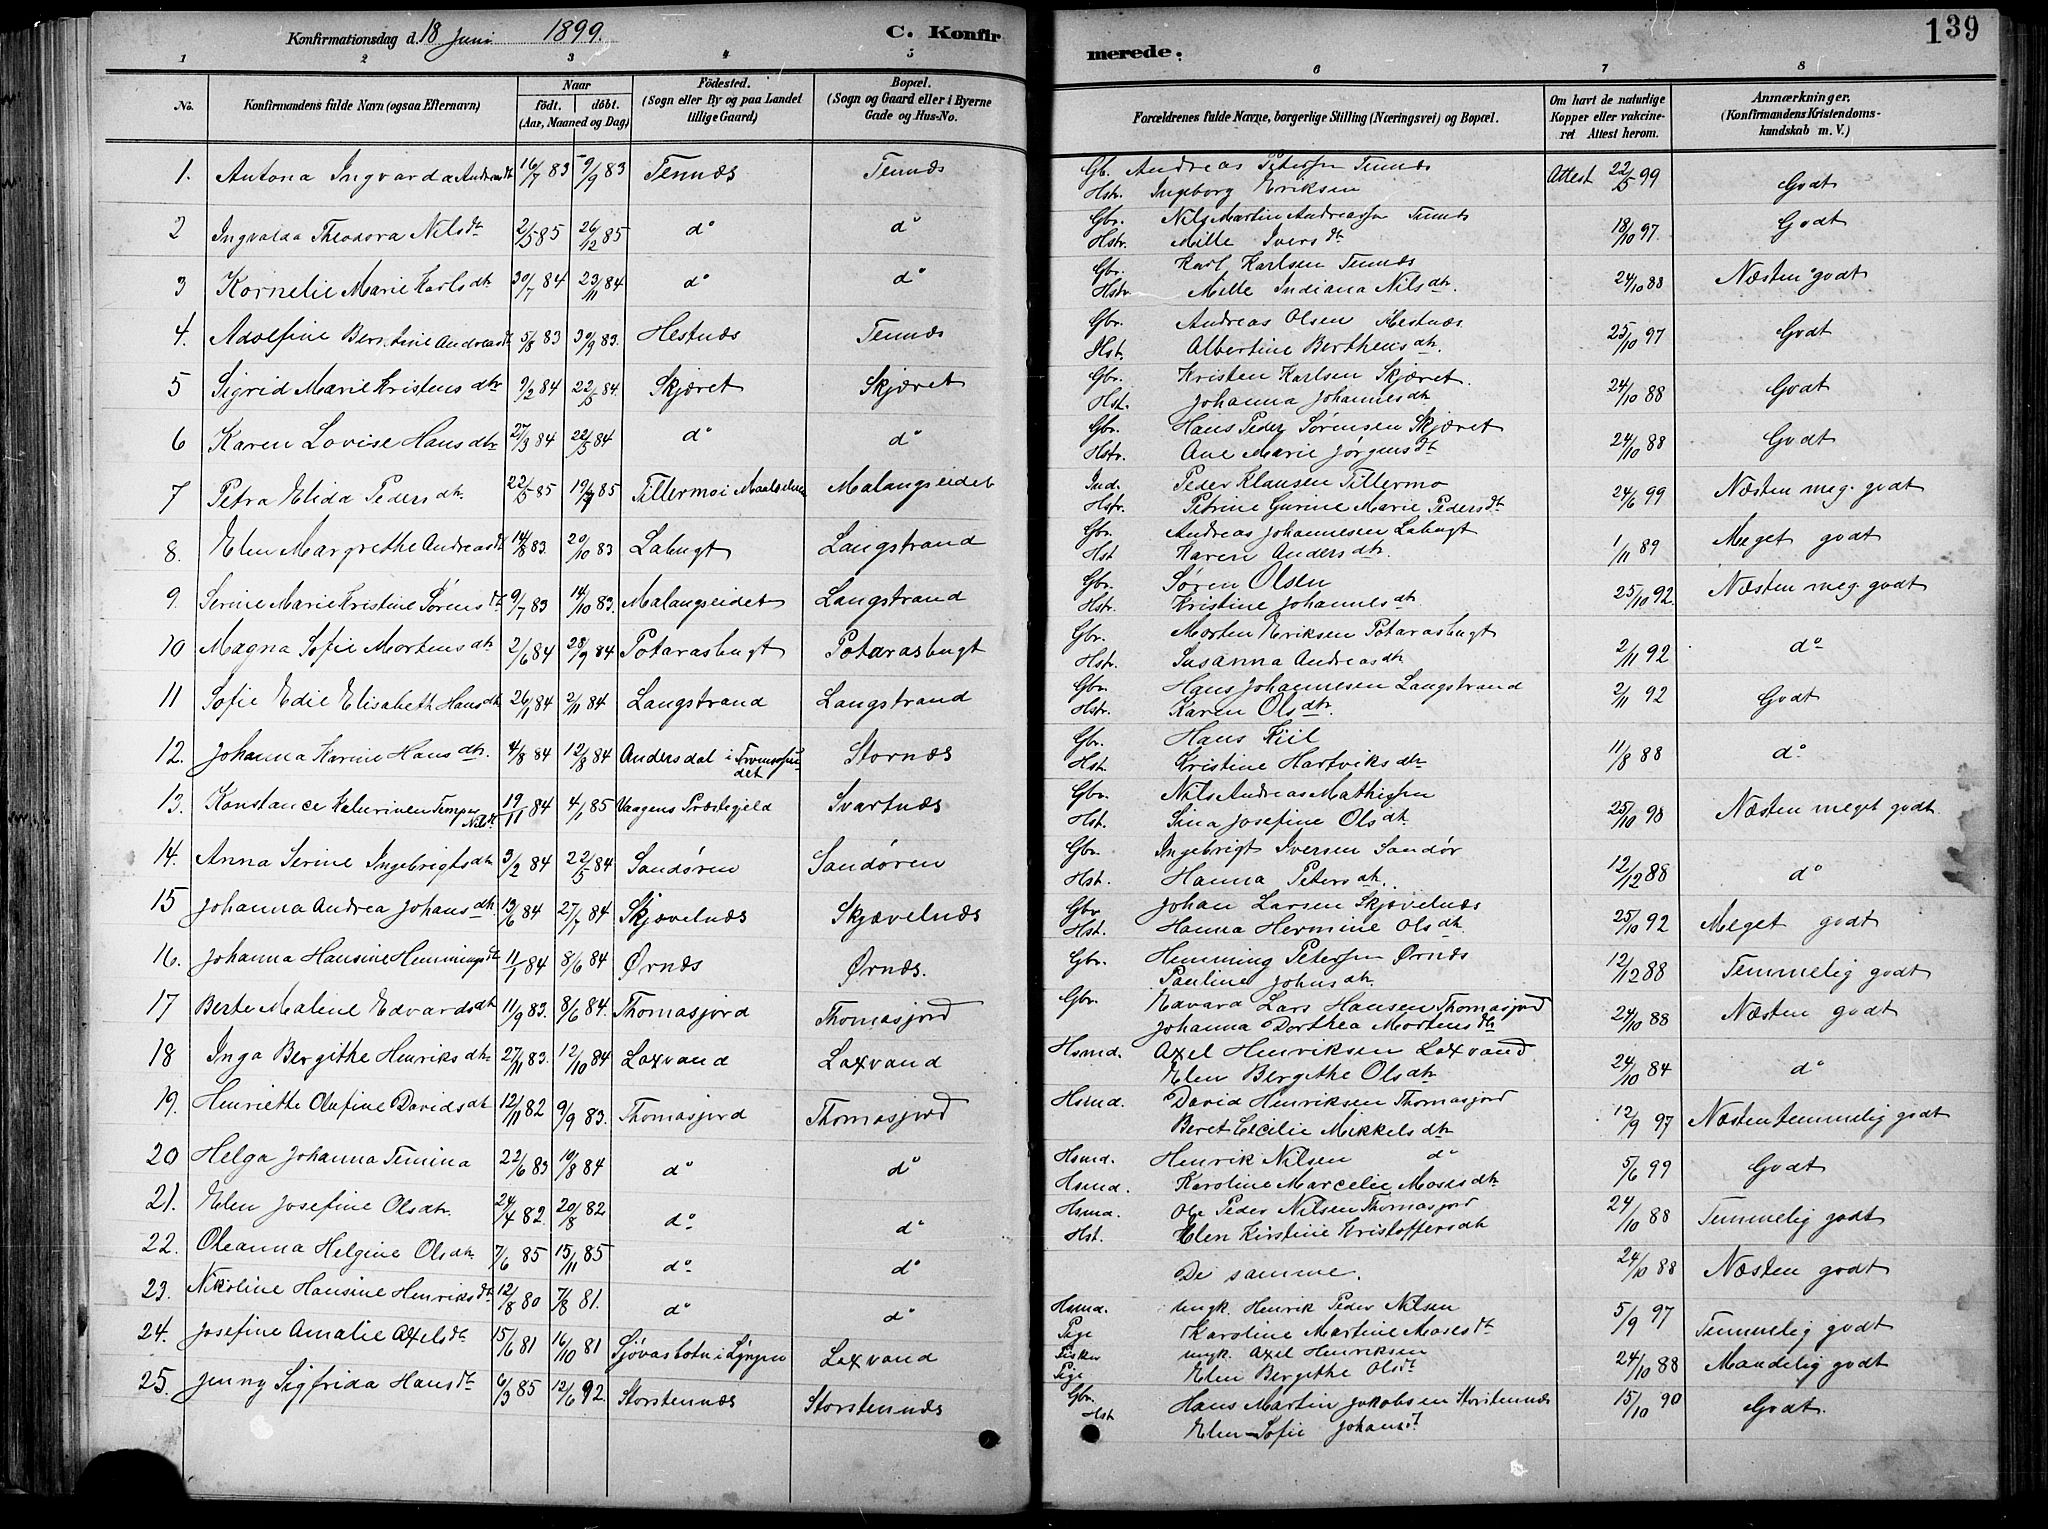 139
Konfirmationsdag d. 18 Juni 1899. C. Konfir-
merede.
1 2 3 4 5 6 7 8
No. Konfirmandens fulde Navn (ogsaa Efternavn) Naar født. døbt. (Aar, Maaned og Dag) Fødested. (Sogn eller By og paa Landet tillige Gaard) Bopæl. (Sogn og Gaard eller i Byerne Gade og Hus-No. Forældrenes fulde Navne, borgerlige Stilling (Næringsvei) og Bopæl. Om havt de naturlige Kopper eller vakcineret Attest herom. Anmærkninger. (Konfirmandens Kristendomskundskab m. V.)
1. Antona Ingvarda Andreasdt 16/7 83 9/9 83 Tennæs Tennæs Gb. Andreas Petersen Tennæs Attest 22/5 99 Godt
Hstr. Ingeborg Eriksen
2 Ingvalda Theodora Nilsdt 2/5 85 26/12 85 do do Gbr. Nils Martin Andreassen Tennæs 18/10 97. Godt
Hstr. Mille Iversdt
3 Kornelie Marie Karlsdtr 30/7 84 23/11 84 do do Gbr. Karl Karlsen Tennæs 24/10 88 Næsten godt
Hstr Mille Indiana Nilsdtr.
4. Adolfine Berntine Andreasdt 5/8 83 30/9 83. Hestnæs Tennæs Gbr. Andreas Olsen Hestnæs 25/10 97 Godt
Hst. Albertine Berthensdtr.
5 Sigrid Marie Kristensdtr 9/2 84 22/5 84. Skjæret Skjæret Gbr. Kristen Karlsen Skjæret. 24/10 88 Godt
Hst. Johanna Johannesdtr
6 Karen Lovise Hansdtr 27/3 84 22/5 84 do do Gbr. Hans Peder Sørensen Skjæret 24/10 88 Godt
Hstr. Ane Marie Jørgensdt
7 Petra Elida Pedersdtr. 22/5 85 19/7 85 Tillermoi Maalselven Malangseidet Ind. Peder Klausen Tillermo 24/6 99 Næsten meg. godt
Hstr. Petrine Gurine Marie Pedersdt
8. Elen Margrethe Andreasdt 14/8 83. 20/10 83 Labugt Langstrand Gbr. Andreas Johannesen Labugt 1/11 89 Meget godt
Hst. Karen Andersdtr.
9. Serine Marie Kristine Sørensdt 9/7 83 14/10 83. Malangseidet Langstrand Gbr. Søren Olsen 25/10 92. Næsten meg. godt
Hstr. Kristine Johannesdtr
10 Magna Sofie Mortensdtr 2/6 84 28/9 84 Potarasbugt Potarasbugt Gbr. Morten Eriksen Potarasbugt 2/11 92 do
Hstr. Susanna Andreasdtr
11 Sofie Edie Elisabeth Hansdtr 26/1 84 2/11 84 Langstrand Langstrand Gbr. Hans Johannesen Langstrand 2/11 92 Godt
Hstr. Karen Olsdtr.
12. Johanna Karine Hansdtr. 4/8 84 12/8 84 Andersdal i Tromsøsundet Stornæs Gbr. Hans Kiil 11/8 88 do
Hst. Kristine Hartviksdtr
13. Konstance Nilsdt 19/11 84 4/1 85 Vaagens Præstegjeld Svartnæs Gbr. Nils Andreas Mathisen 25/10 90 Næsten meget godt
Hst. Sina Josefine Olsdtr.
14. Anna Serine Ingebrigtsdtr 3/2 84 22/5 84 Sandøren Sandøren Gbr. Ingebrigt Iversen Sandør 12/12 88 do
Hst. Hanna Petersdtr.
15 Johanna Andrea Johansdtr. 13/6 84 27/7 84 Skjævelnæs Skjævelnæs Gbr Johan Larsen Skjævelnæs 25/10 92 Meget godt
Hst. Hanna Hermine Olsdtr.
16. Johanna Hansine Hemmingsdt 11/1 84 8/6 84 Ørnæs Ørnæs. Gbr. Hemming Petersen Ørnæs 12/12 88 Temmelig godt
Pauline Johnsdtr.
17 Berte Maline Edvardsdtr 11/9 83. 8/6 84. Thomasjord Thomasjord Gbr. Edvard Lars Hansen Thomasjord 24/10 88 Næsten godt
Johanna Dorthea Mortensdtr
18 Inga Bergithe Henriksdtr 27/11 83. 12/10 84 Laxvand Laxvand Hsmd. Axel Henriksen Laxvand 24/10 84 do
Elen Bergithe Olsdtr
19. Henriette Olufine Davidsdtr 12/11 82 9/9 83. Thomasjord Thomasjord Hsmd. David Henriksen Thomasjord 12/9 97 Næsten temmelig godt
Beret Cecilie Mikkelsdtr
20 Helga Johanna Temina 22/6 83 10/8 84 do do Hsmd. Henrik Nilsen do 5/6 99 Godt
Hsmd. Karoline Marcelie Mosesdtr
21. Elen Josefine Olsdtr. 24/4 82. 20/8 82 do do Hsmd. Ole Peder Nilsen Thomasjord 24/10 88 Temmelig godt
Hst. Elen Kirstine Kristoffersdtr
22. Oleanna Helgine Olsdtr 7/6 85 15/11 85 do do De samme. 24/10 88 Næsten godt
23. Nikoline Hansine Henriksdt 12/8 80 7/8 81. do do Hsmd. Ungk. Henrik Peder Nilsen 5/9 97 Temmelig godt
Pige Karoline Martine Mosesdt
24. Josefine Amalie Axelsdt 15/6 81 16/10 81 Sjøvasbotn i Lyngen Laxvand Fisker ungk. Axel Henriksen 24/10 88 Maadelig godt
Pige Elen Bergithe Olsdt
25. Jenny Sigfrida Hansdt 6/3 85 12/6 92. Storstennæs Storstennæs Gbr. Hans Martin Jakobsen Storstennæs 15/10 90 Godt.
Hst Elen Sofie Johansdt